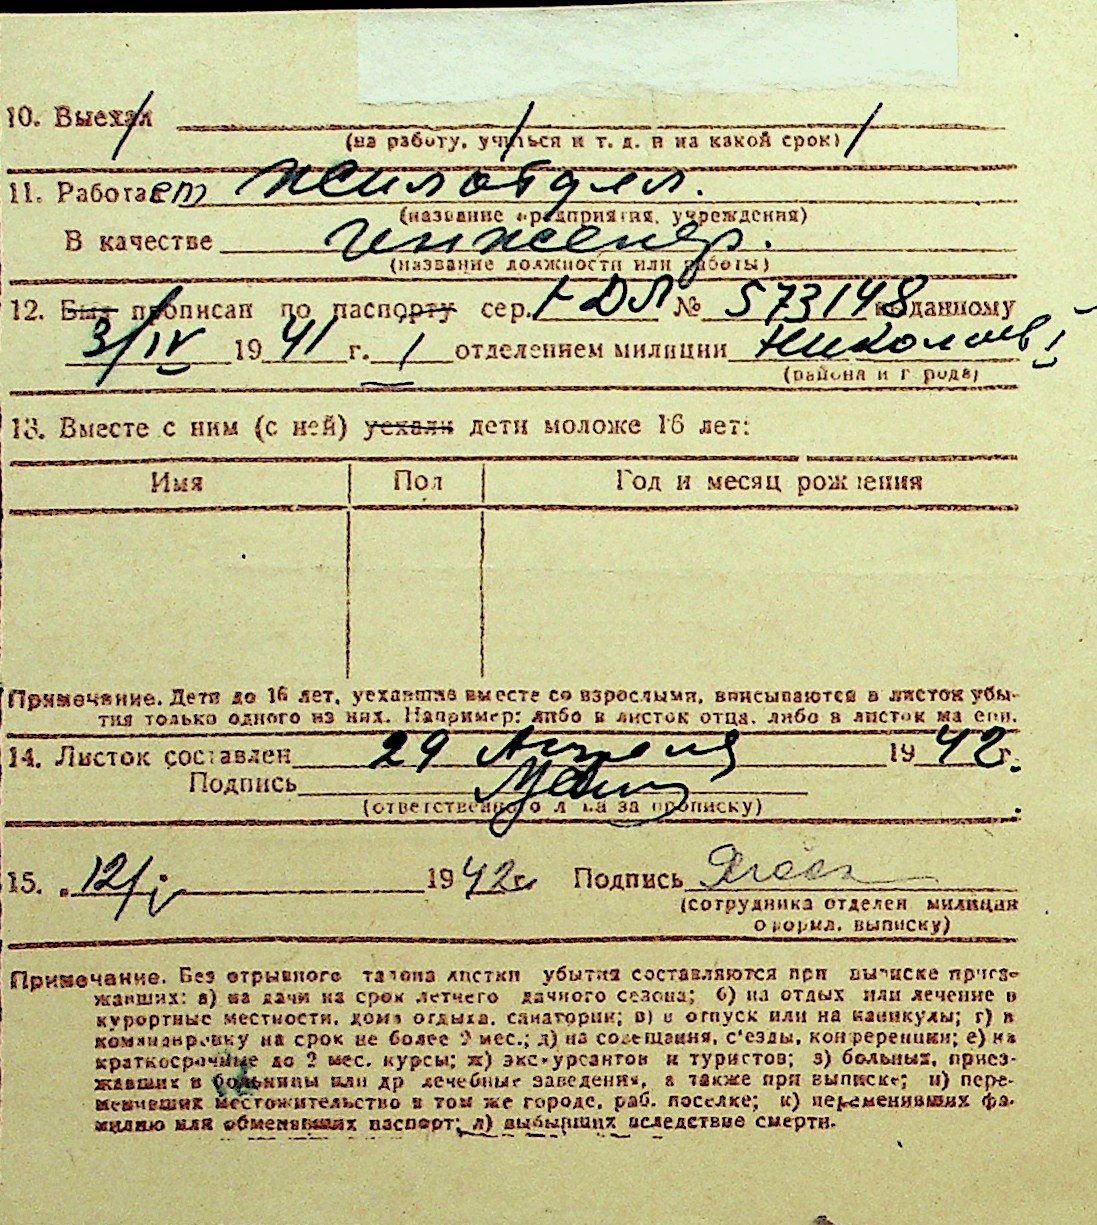 10. Выехал
(на работу, учиться и т. д. и на какой срок)
11. Работает Жилотдел.
(название предприятия, учреждения)
В качестве инженер.
(название должности или работы)
12. Был прописан по паспорту сер. I-ДЛ № 573148 выданному
3/IV 1941 г. 1 отделением милиции Николаев
(района и города)
13. Вместе с ним (с ней) уехали дети моложе 16 лет:
Имя Пол Год и месяц рождения
Примечание. Дети до 16 лет, уехавшие вместе со взрослыми, вписываются в листок убы-
тия только одного из них. Например: либо в листок отца, либо в листок матери.
14. Листок составлен 29 Апреля 1942 г.
Подпись
(ответственного лица за прописку)
15. 12/V 1942 г. Подпись
(сотрудника отделен. милиции
оформл. выписку)
Примечание. Без отрывного талона листки убытия составляются при выписке приез-
жавших: а) на дачи на срок летнего дачного сезона; б) на отдых или лечение в
курортные местности, дома отдыха, санатории; в) в отпуск или на каникулы; г) в
командировку на срок не более 2 мес.; д) на совещания, с'езды, конференции; е) на
краткосрочные до 2 мес. курсы; ж) экскурсантов и туристов; з) больных, приез-
жавших в больницы или др лечебные заведения, а также при выписке; и) пере-
менивших местожительство в том же городе, раб. поселке; к) переменивших фа-
милию или обменявших паспорт; л) выбывших вследствие смерти.